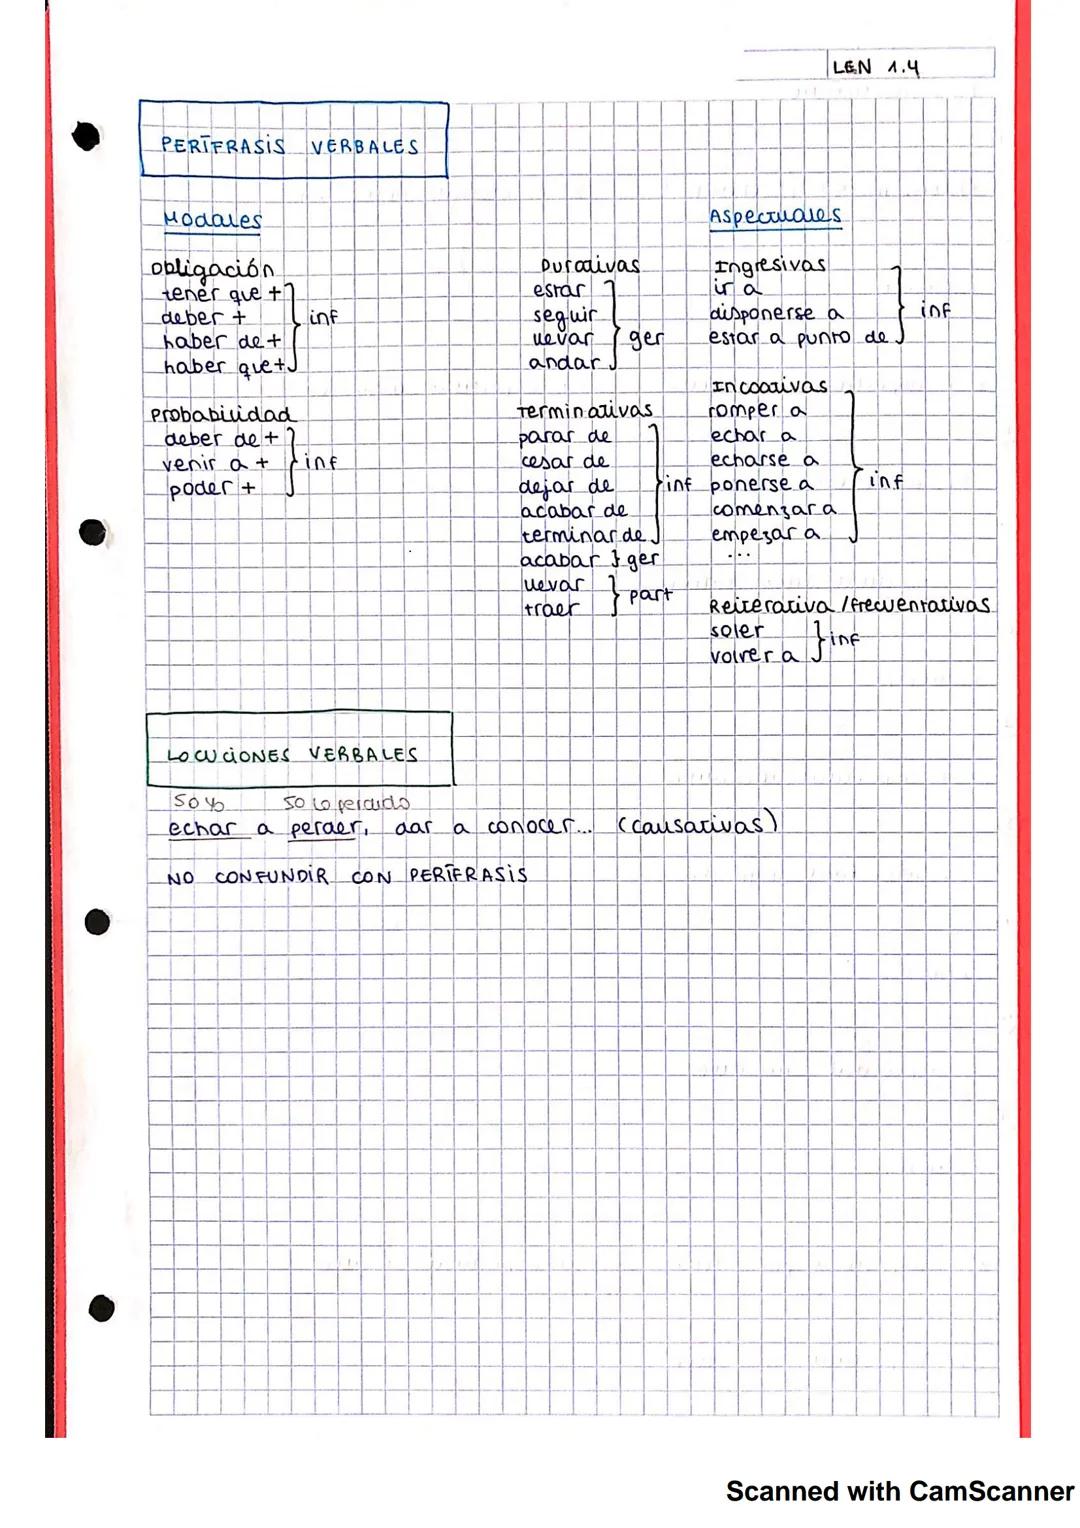 LEN 1.4
PERÍFRASIS VERBALES
Modales
obligación
tener que +
deber +
haber de +
haber que +
} inf
Probabilidad
deber de +
venir a +
poder +
} inf
Aspectuales
Durativas
estar
seguir
llevar
andar
} ger
Terminativas
parar de
cesar de
dejar de
acabar de
terminar de
} inf
acabar } ger
llevar
traer
} part
Ingresivas
ir a
disponerse a
estar a punto de
} inf
Incoativas
romper a
echar a
echarse a
ponerse a
comenzar a
empezar a
...
} inf
Reiterativa / frecuentativas
soler
volver a
} inf
LOCUCIONES VERBALES
so lo perdido
echar a perder, dar a conocer... (causativas)
NO CONFUNDIR CON PERÍFRASIS
Scanned with CamScanner